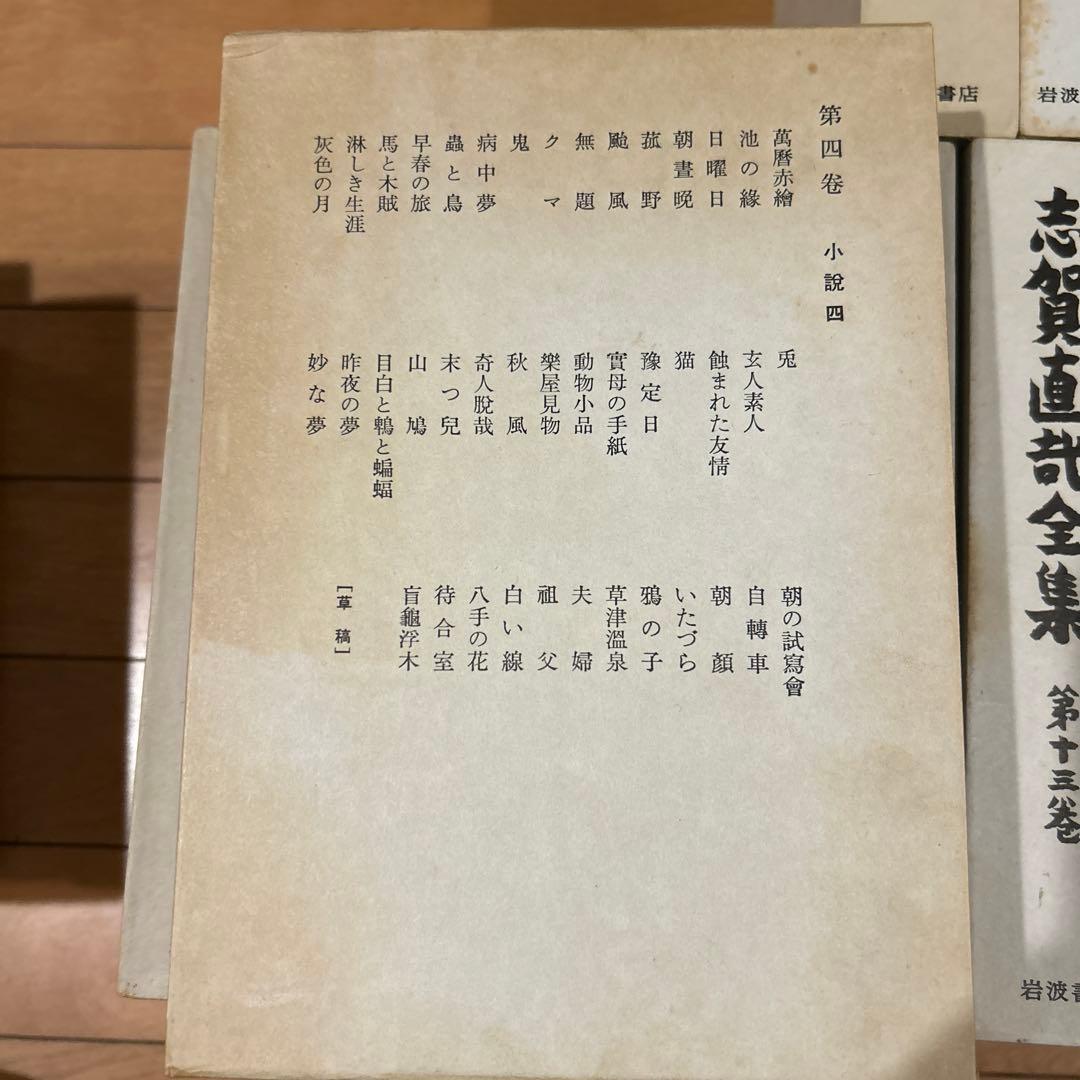 第四卷　小說四
萬曆赤繪
池の緣
日曜日
朝晝晩
菰野
颱風
無題
クマ
鬼
病中夢
蟲と鳥
早春の旅
馬と木賊
淋しき生涯
灰色の月
兎
玄人素人
蝕まれた友情
猫
豫定日
實母の手紙
動物小品
樂屋見物
秋風
奇人脫哉
末つ兒
山鳩
目白と鵯と蝙蝠
昨夜の夢
妙な夢
朝の試寫會
自轉車
朝顏
いたづら
鴉の子
草津溫泉
夫婦
祖父
白い線
八手の花
待合室
盲龜浮木
［草稿］
書店
岩波
志賀直哉全集
第十三卷
岩波書